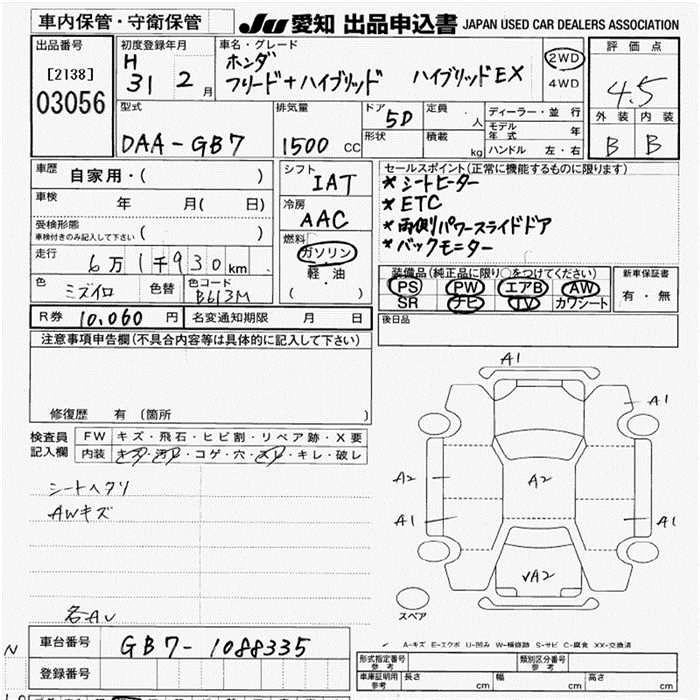 車内保管・守衛保管
JU 愛知 出品申込書 JAPAN USED CAR DEALERS ASSOCIATION
出品番号
[2138]
03056
初度登録年月
H
31 2 月
車名・グレード
ホンダ
フリード+ハイブリッド ハイブリッドEX
2WD
4WD
評価点
4.5
外装 内装
B B
型式
DAA-GB7
排気量
1500 CC
ドア 5D
形状
定員 人
積載 kg
ディーラー・並行
モデル年式 年
ハンドル 左・右
車歴
自家用・( )
車検 年 月( 日)
受検形態
車検付きのみ記入して下さい ( )
走行
6万1千930km
色 ミズイロ 色替 色コード B613M
シフト
IAT
冷房
AAC
燃料
ガソリン
軽・油
( )
セールスポイント(正常に機能するものに限ります)
*シートヒーター
*ETC
*両側パワースライドドア
*バックモニター
装備品(純正品に限り○をつけてください)
PS PW エアB AW
SR ナビ TV カワシート
新車保証書
有・無
R券 10,060 円 名変通知期限 月 日
後日品
注意事項申告欄(不具合内容等は具体的に記入して下さい)
修復歴 有 (箇所 )
検査員
記入欄
FW キズ・飛石・ヒビ割・リペア跡・X要
内装 キズ・汚レ・コゲ・穴・スレ・キレ・破レ
シートヘタリ
AWキズ
A1
A1
A2 A2
A1 A1
A2
スペア
A-キズ E-エクボ U-凹み W-補修跡 S-サビ C-腐食 XX-交換済
車台番号 GB7-1088335
登録番号
N
形式指定番号
参考
類別区分番号
参考
車庫証明用
参考
長さ cm 幅 cm 高さ cm